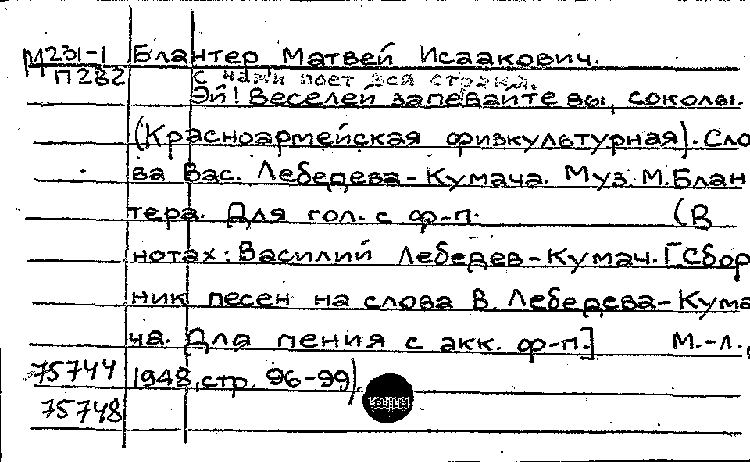 М231-1 Блантер Матвей Исаакович.
П282 С нами поет вся страна.
Эй! Веселей запевайте вы, соколы.
(Красноармейская физкультурная). Сло
ва Вас. Лебедева-Кумача. Муз. М. Блан
тера. Для гол. с ф-п. (В
нотах: Василий Лебедев-Кумач. [Сбор
ник песен на слова В. Лебедева-Кума
ча. Для пения с акк. ф-п.] М.-Л.,
75744 1948, стр. 96-99)
75748